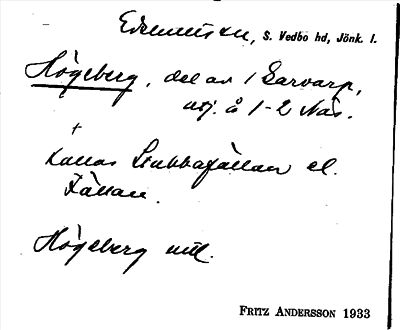 Edshult sn, S. Vedbo hd, Jönk. l.
Högeberg, del av 1 Sarvarp,
utj. å 1-2 Näs.
+
kallas Stubbafällan el.
Fällan.
Högeberg utl.
FRITZ ANDERSSON 1933